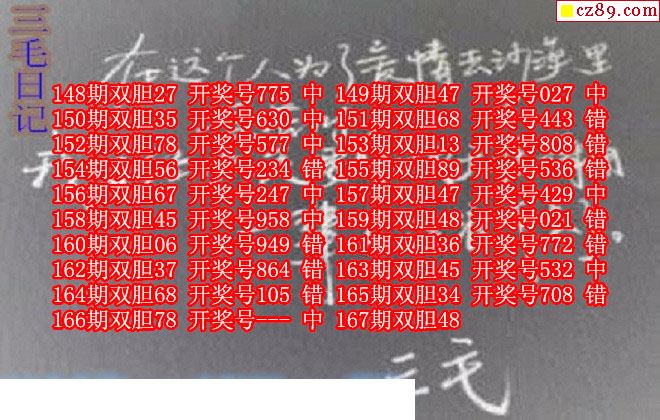 cz89.com
三毛日记
在这个人为了爱情去沙海里
148期双胆27 开奖号775 中 149期双胆47 开奖号027 中
150期双胆35 开奖号630 中 151期双胆68 开奖号443 错
152期双胆78 开奖号577 中 153期双胆13 开奖号808 错
154期双胆56 开奖号234 错 155期双胆89 开奖号536 错
156期双胆67 开奖号247 中 157期双胆47 开奖号429 中
158期双胆45 开奖号958 中 159期双胆48 开奖号021 错
160期双胆06 开奖号949 错 161期双胆36 开奖号772 错
162期双胆37 开奖号864 错 163期双胆45 开奖号532 中
164期双胆68 开奖号105 错 165期双胆34 开奖号708 错
166期双胆78 开奖号--- 中 167期双胆48
三毛